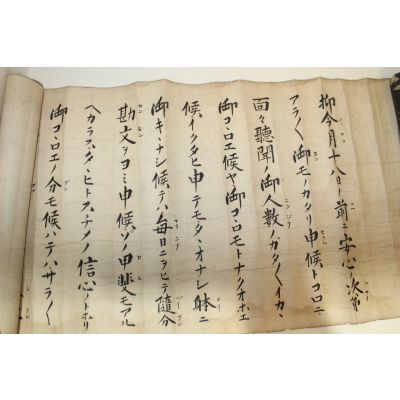 抑今月十八日ノ前ニ安心ノ次第
アラ〳〵御モノカタリ申候トコロニ
面々聴聞ノ御人数ノカタ〳〵イカヽ
御コヽロエ候ヤ御コヽロモトナクオホエ
候イクタヒ申テモタヽオナシ躰ニ
御キヽナシ候テハ毎日ニヲヒテ随分
勘文ヲヨミ申候ソノ甲斐モアル
ヘカラスタヽヒトスチメノ信心ノトホリ
御コヽロエノ分モ候ハテハサラ〳〵